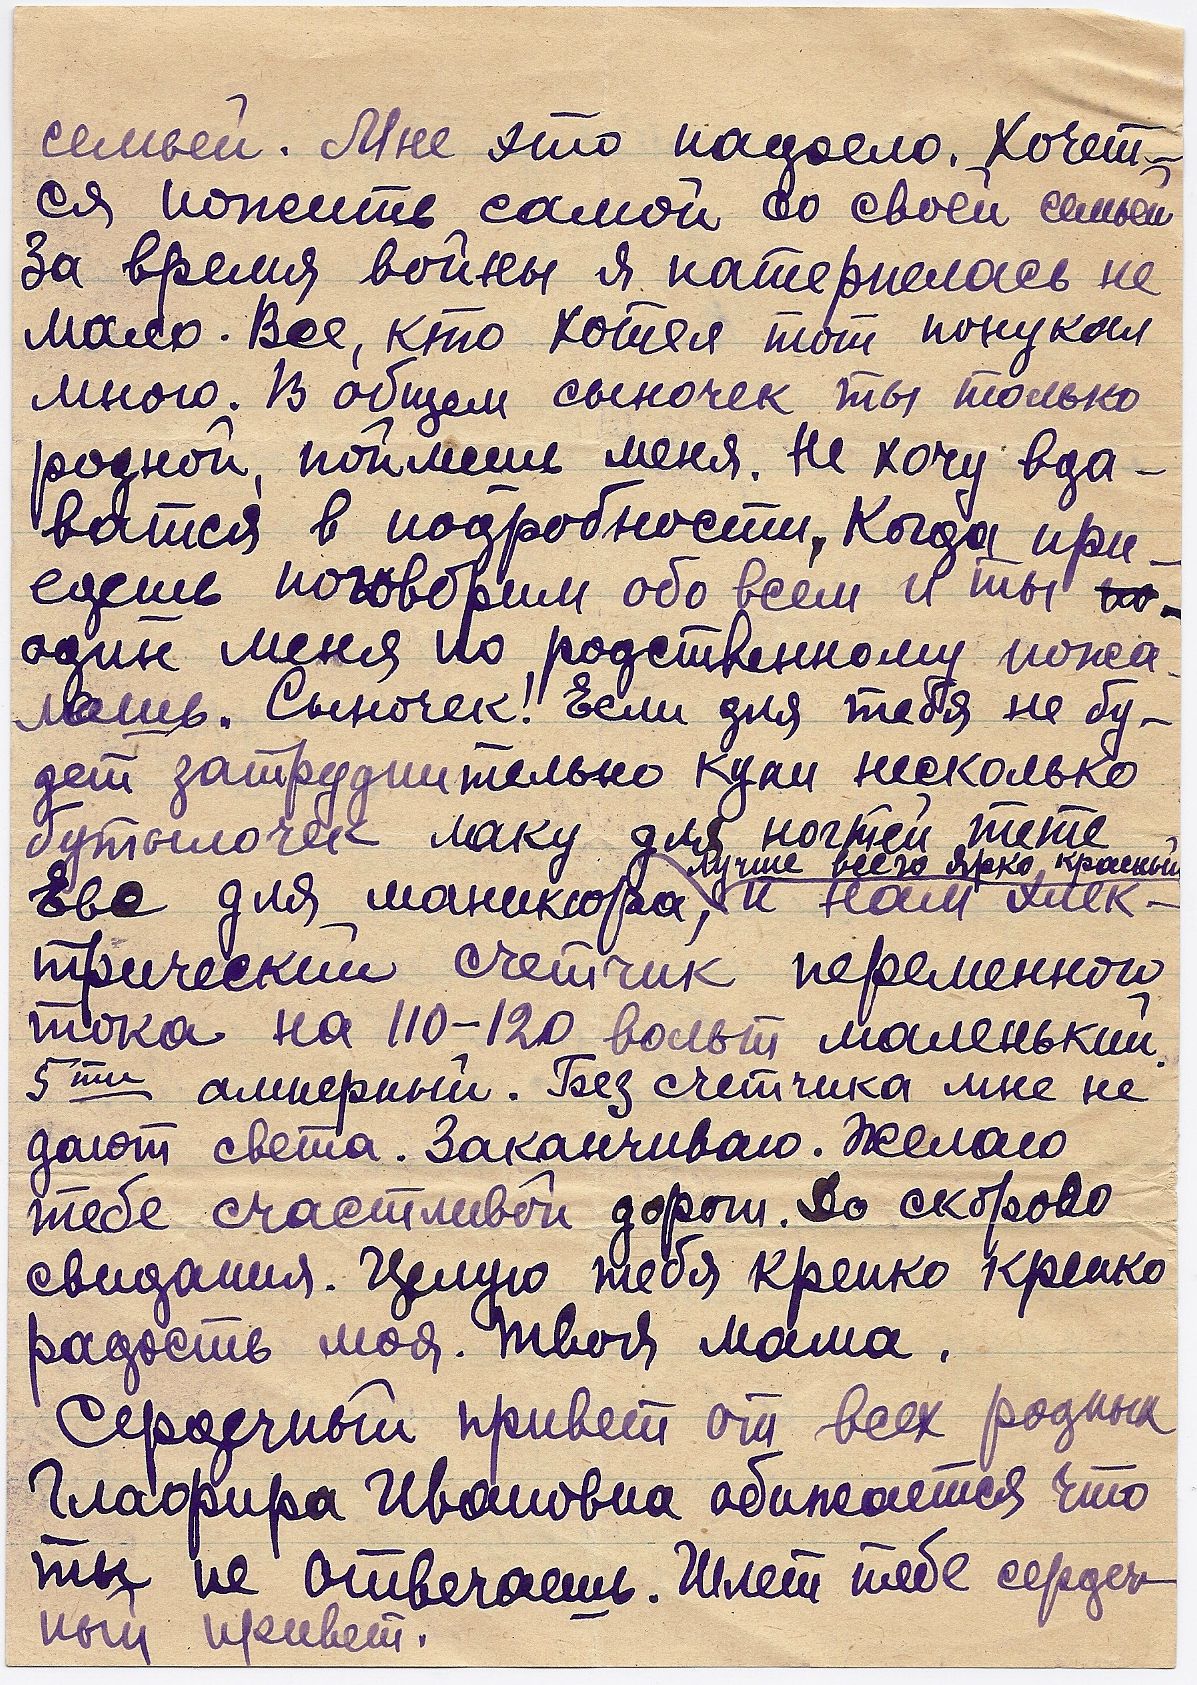 семьей. Мне это надоело. Хочет-
ся пожить самой со своей семьей
За время войны я натерпелась не
мало. Все, кто хотел тот понукал
мною. В общем сыночек ты только
родной, поймешь меня. Не хочу вда-
ватся в подробности, Когда при-
едешь поговорим обо всем и ты
один меня по родственному пожа
леешь. Сыночек! Если для тебя не бу-
дет затруднительно купи несколько
бутылочек лаку для ногтей тете
лучше всего ярко красный
Еве для маникюра, и нам элек-
трический счетчик переменного
тока на 110-120 вольт маленький.
5ти амперный. Без счетчика мне не
дают света. Заканчиваю. Желаю
тебе счастливой дороги. До скорово
свидания. Целую тебя крепко крепко
радость моя. Твоя мама.
Сердечный привет от всех родных
Глафира Ивановна обижается что
ты не отвечаешь. Шлет тебе сердеч
ный привет.